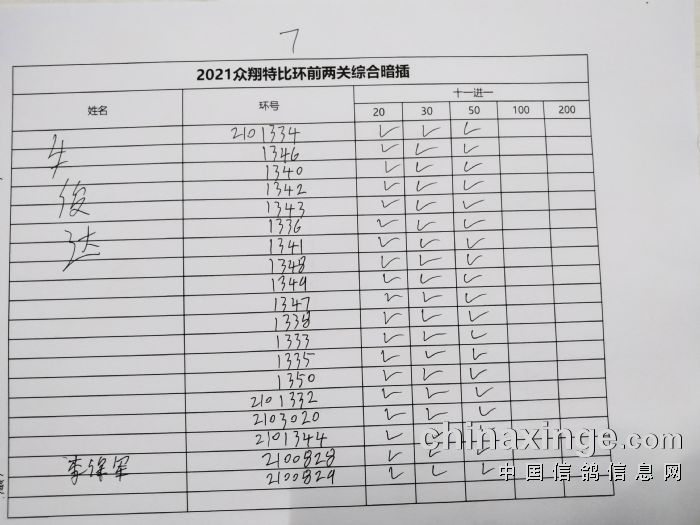 7
2021众翔特比环前两关综合暗插
姓名 环号 十一进一
20 30 50 100 200
2101334 ✓ ✓ ✓
1346 ✓ ✓ ✓
1340 ✓ ✓ ✓
1342 ✓ ✓ ✓
1343 ✓ ✓ ✓
1336 ✓ ✓ ✓
1341 ✓ ✓ ✓
1348 ✓ ✓ ✓
1349 ✓ ✓ ✓
1347 ✓ ✓ ✓
1338 ✓ ✓ ✓
1333 ✓ ✓ ✓
1335 ✓ ✓ ✓
1350 ✓ ✓ ✓
2101332 ✓ ✓ ✓
2103020 ✓ ✓ ✓
2101344 ✓ ✓ ✓
2100828 ✓ ✓ ✓
2100829 ✓ ✓ ✓
chinaxinge.com
中国信鸽信息网